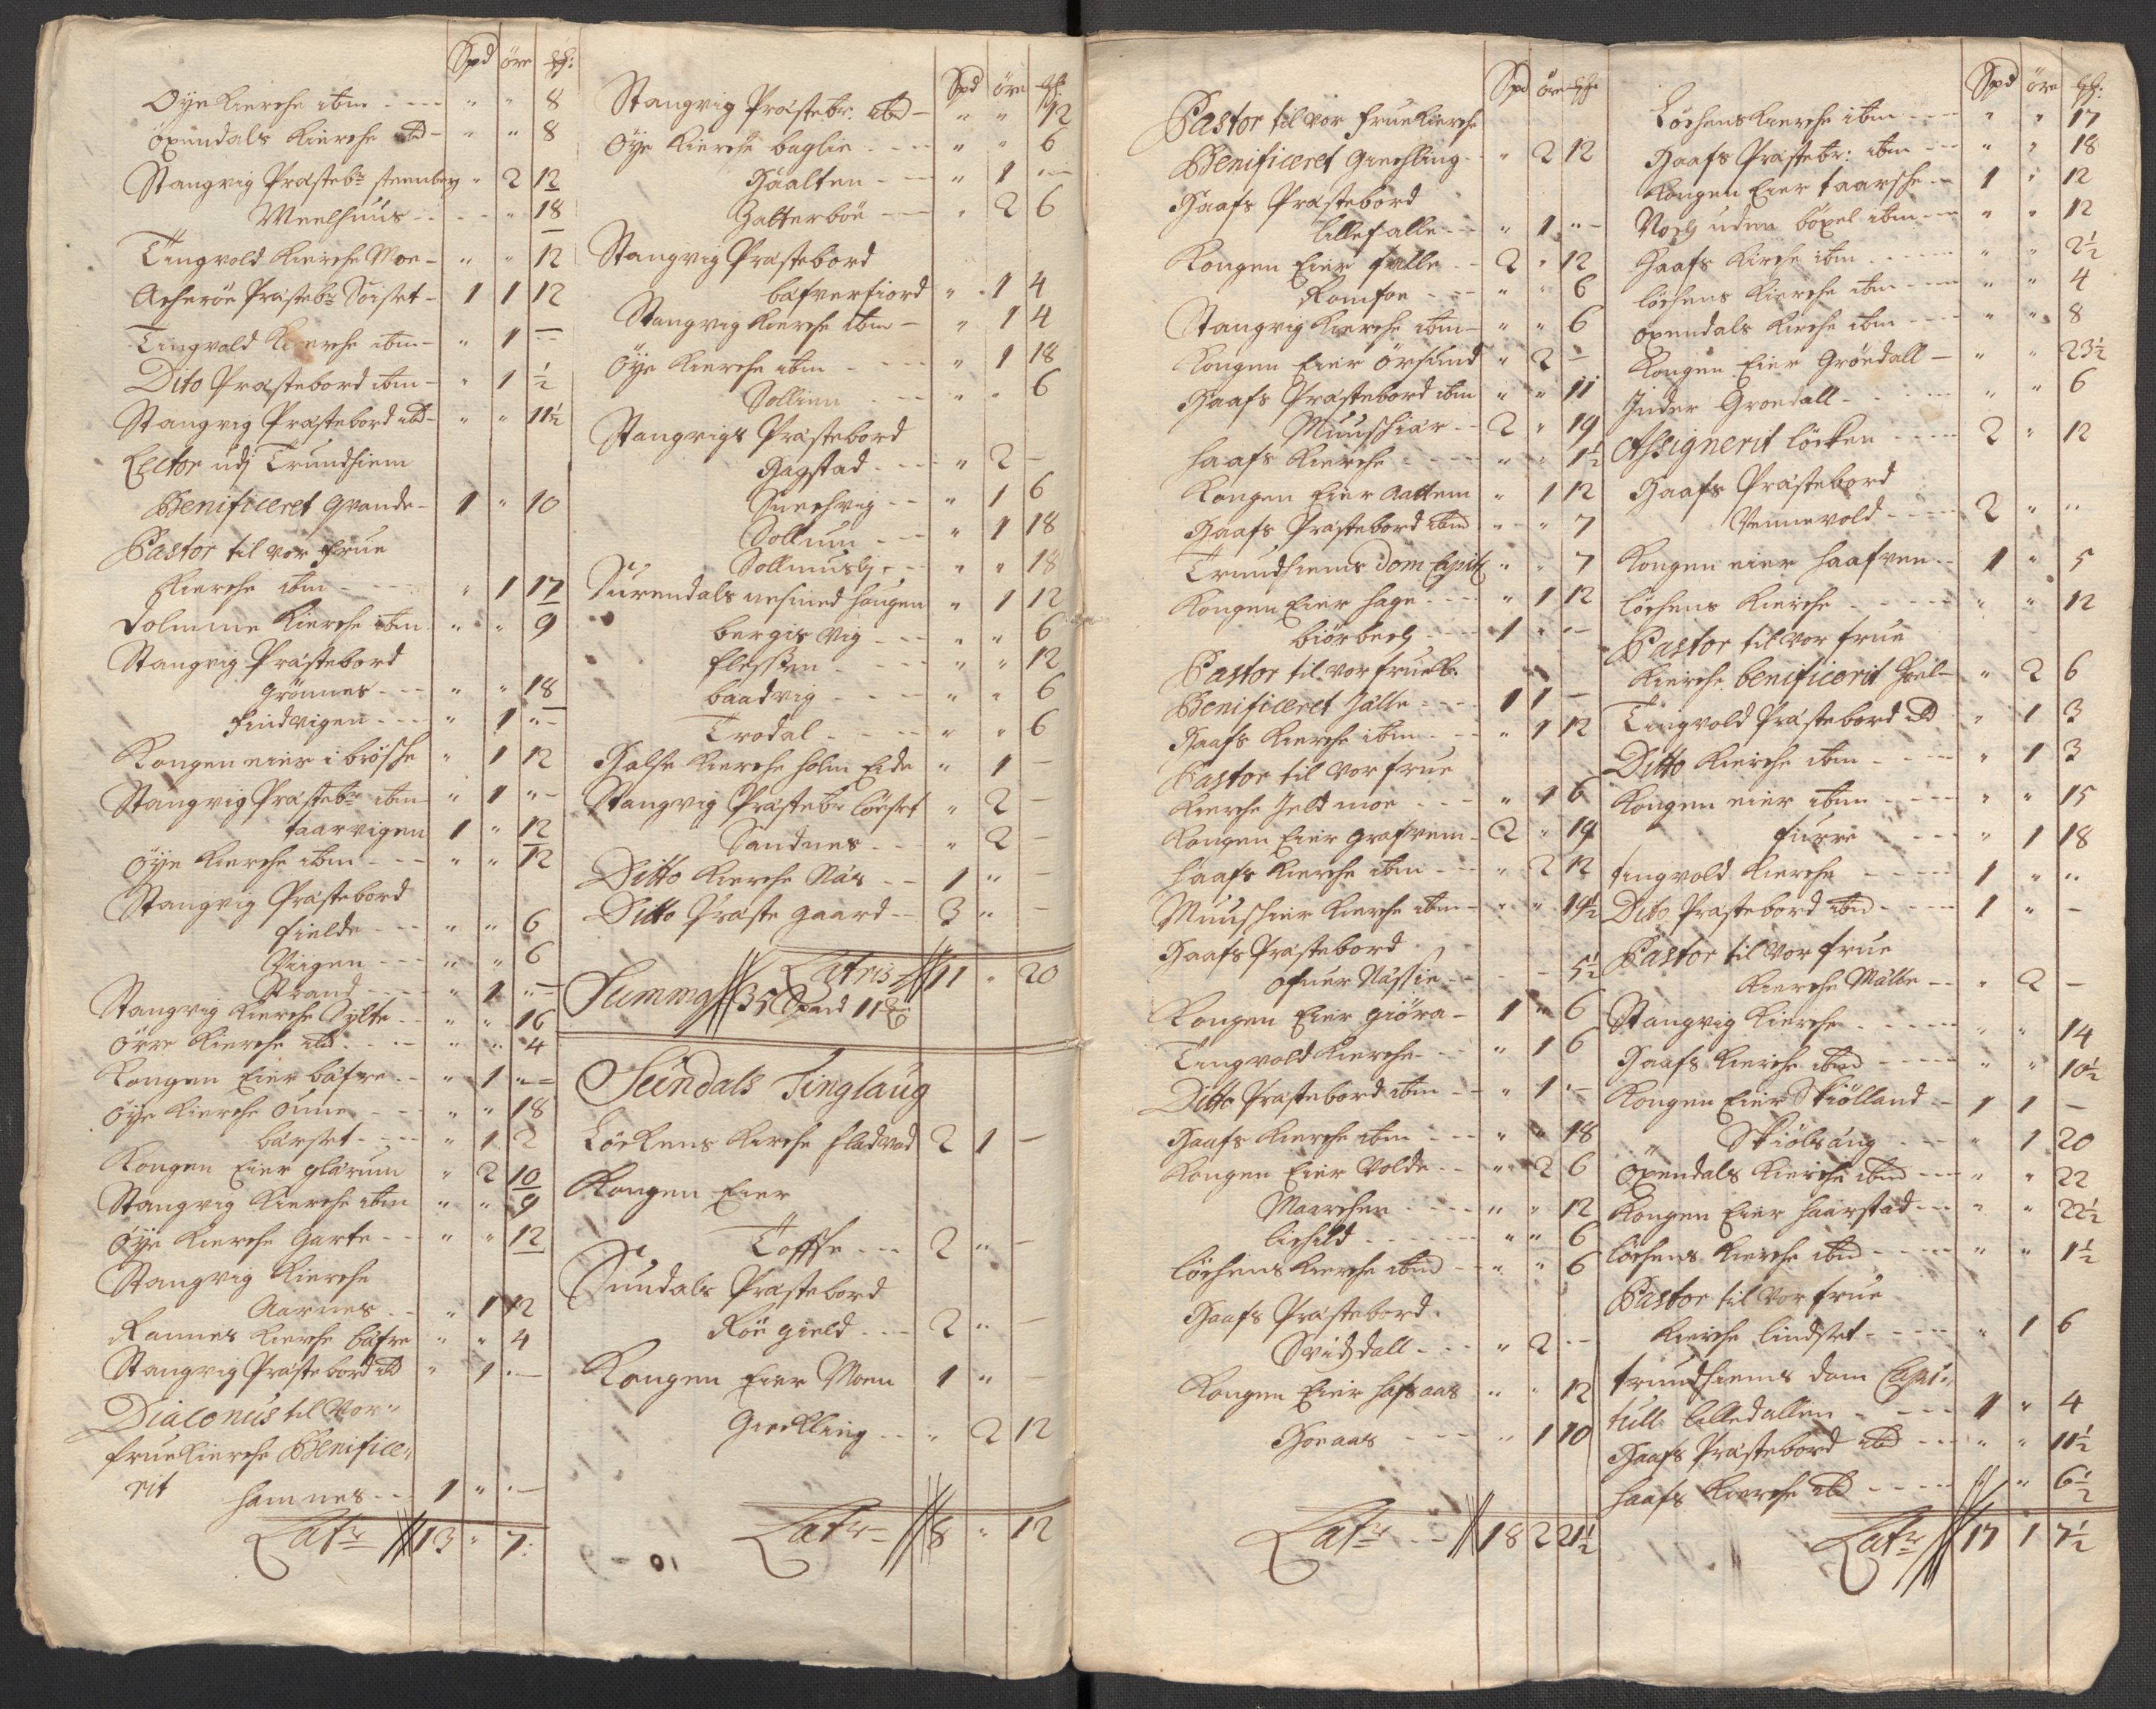 Spd öre
Oÿe Kierche ibm - - - " " 8
öxendals Kierche ibd - " " 8
Stangvig Præstebr steenbey " 2 12
Meelhuus - - - " 18
Tingvold Kierche Moe - " " 12
Acheröe Præstebr Söiset - 1 1 12
Tingvold Kierche ibm - " 1 -
Dito Præstebord ibm - " 1 ½
Stangvig Præstebord ibd - " " 11½
Lector udj Trundhiem
Benificeret qvande - 1 " 10
Pastor til vor frue
Kierche ibm - - - " 1 17
Dolmme Kierche ibm " " 9
Stangvig Præstebord
Grönnes - - " " 18
findvigen - - - " 1 " -
Kongen eier i brösche " 1 12
Stangvig Præstebr ibm - " 1 " -
taarvigen 1 " 12
Oÿe Kierche ibm - - - " " 12
Stangvig Præstebord
fielde - - " " 6
Viigen - - - " " 6
Strand - - - " 1 " -
Stangvig Kierche Sylte - - " " 16
Örre Kierche ibd - - - " " 4
Kongen Eier báfre - - " 1 " -
Oÿe Kierche Ounne - - - " " 18
bárset - - - " 1 2
Kongen Eier glærum " 2 10
Stangvig Kierche ibm " " 9
Oÿe Kierche Garte - - " " 12
Stangvig Kierche
Aarnes - - " 1 12
Rannes Kierche báfre " " 4
Stangvig Præstebord ibd " 1 " -
Diaconus til Vor
frue Kierche Benifice
rit hamnes - - 1 " -
Latr 13 " 7
Spd öre
Stangvig Præstebr. ibd - " " 12
Oÿe Kierche baglie - - - " " 6
Haalten - - - " 1 -
Zatterböe - - - " 2 6
Stangvig Præstebord
báfverfiord " 1 4
Stangvig Kierche ibm - " 1 4
Oÿe Kierche ibm - - - - " 1 18
Sollien - - - " " 6
Stangvigs Præstebord
Hagstad - - - " 2 -
Snechvig - - " 1 6
Sollum - - - " 1 18
Sollmusly - - " " 18
Surendals nesined hougen " 1 12
bergis vig - - - " " 6
flessen - - - - " " 12
baadvig - - - - " " 6
Trodal - - - - " " 6
Halse Kierche holm Eide " 1 -
Stangvig Præstebr löeset " 2 -
Sandnes - - - " 2 -
Ditto Kierche Nás - - 1 " -
Ditto Præste gaard - - 3 " -
Latris 11 " 20
Summa 35 Spand 11
Sundals Tinglaug
Löckens Kirche fladvad 2 1 -
Kongen Eier
Toffse - - - 2 " -
Sundals Præstebord
Röe gield - - - 2 " -
Kongen Eier Moen 1 " -
Giechling - - " 2 12
Latr 8 " 12
Spd öre
Pastor til vor frue Kierche
Benificeret Giechling - - " 2 12
Haafs Præstebord
lille falle - - " 1 " -
Kongen Eier falle - - 2 " 12
Romfoe - - - " " 6
Stangvig Kierche ibm - " " 6
Kongen Eier Örsund " 2 -
Haafs Præstebord ibm " " 11
Muuschiær - - 2 " 19
haafs Kierche - - - - " " 1½
Kongen Eier Aattem " 1 12
Haafs Præstebord ibm " " 7
Trundhiems Dom Capit " " 7
Kongen Eier hage - - - " 1 12
biörbech - - - 1 " -
Pastor til vor frue K:
Benificeret Jälle - - - 1 1 -
Haafs Kierche ibm - - - " 1 12
Pastor til vor frue
Kierche Jeldmoe - - - " 1 6
Kongen Eier Grafvem - 2 " 19
haafs Kierche ibm - - - " 2 12
Muuschier Kierche ibm - " " 19½
Haafs Præstebord
ofuer Nássie - - - - 5½
Kongen Eier giöra - 1 " 6
Tingvold Kierche - - " 1 6
Ditto Præstebord ibm - - " 1 " -
Haafs Kierche ibm - - - " " 18
Kongen Eier Volde - - " 2 6
Maarchen - - - - " " 12
lichild - - - - - " " 6
löchens Kierche ibm - - " " 6
Haafs Præstebord
Svidsdall - - - " 2 - -
Kongen Eier hafsaas " " 12
Hoeaas - - - " 1 10
Latr - - 18 2 21½
Spd öre
Löchens Kierche ibm - - - " " 17
Haafs Præstebr: ibm - - - " " 18
Kongen Eier taarsche - - 1 " 12
Noch uden böxel ibm - - - " " 12
Haafs Kirche ibm - - - - - " " 2½
löchens Kierche ibm - - - " " 4
öxendals Kirche ibm - - - " " 8
Kongen Eier Gröedall - " " 23½
Inder Groedall - - - - - " " 6
Assignerit löcken - - - - 2 " 12
Haafs Præstebord
Vennevold - - - - 2 " "
Kongen eier haafven - - 1 " 5
löchens Kierche - - - - - " " 12
Pastor til vor frue
Kierche benificerit hoel - " 2 6
Tingvold Præstebord ibd " 1 3
Ditto Kierche ibm - - - - " 1 3
Kongen eier ibm - - - - " " 15
furre - - - " 1 18
tingvold Kierche - - - - 1 " "
Dito Præstebord ibd - - - 1 " -
Pastor til vor frue
Kierche Málle - - " 2 -
Stangvig Kierche - - - - - " " 14
Haafs Kierche ibd - - - - " " 10½
Kongen Eier Skiölland - 1 1 -
" Skiölsáng - - - " 1 20
öxendals Kierche ibd - - - " " 22
Kongen Eier haarstad - - - " " 22½
löchens Kierche ibd - - - - " " 1½
Pastor til vor frue
Kierche lindset - - - - - " 1 6
trundhiems dom Capi
tull lilledallen - - - - 1 " 4
Haafs Præstebord ibd - - - " " 11½
haafs Kierche ibd - - - - " " 6½
Latr 17 1 7½